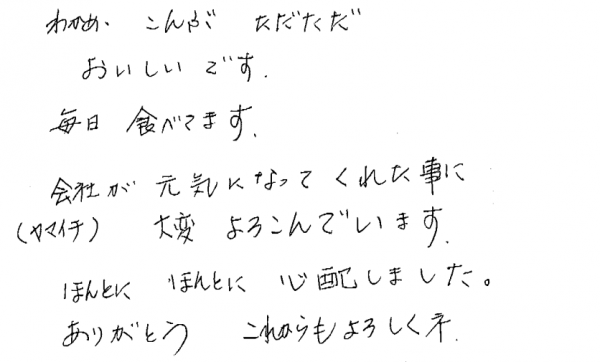 わかめ、こんぶ ただただ
おいしいです.
毎日 食べてます.
会社が 元気になって くれた事に
(ヤマイチ) 大変 よろこんでいます.
ほんとに ほんとに 心配しました。
ありがとう これからもよろしくネ.